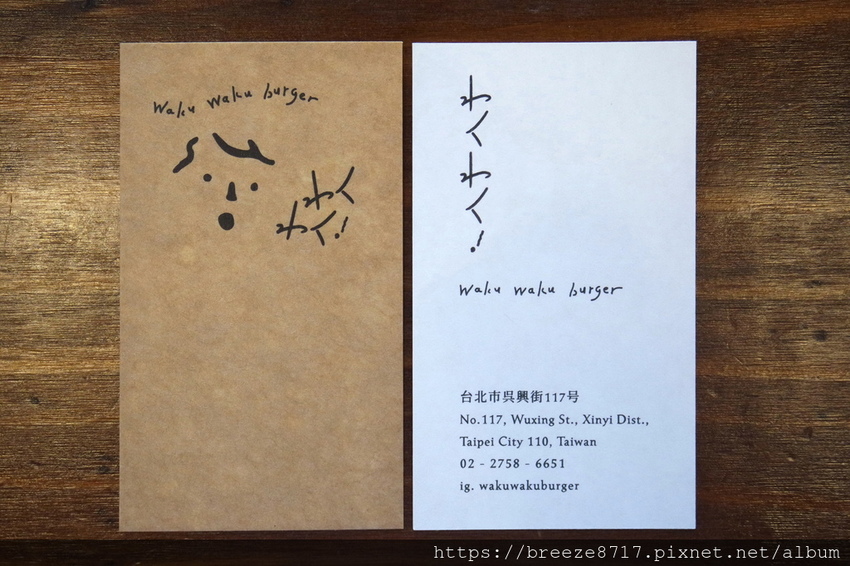 waku waku burger
わく
わく!
わくわく!
waku waku burger
台北市呉興街117号
No.117, Wuxing St., Xinyi Dist.,
Taipei City 110, Taiwan
02 - 2758 - 6651
ig. wakuwakuburger
https://breeze8717.pixnet.net/album